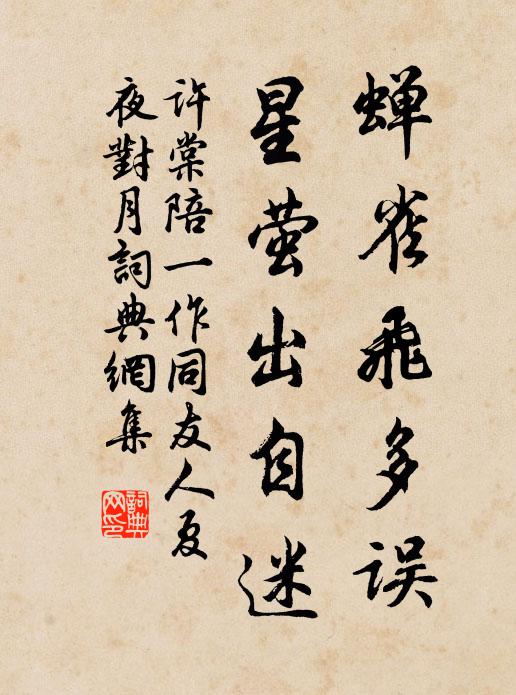 蝉雀飞多误
星萤出自迷
许棠陪一作同友人夏
夜對月詞典網集
詞典网印